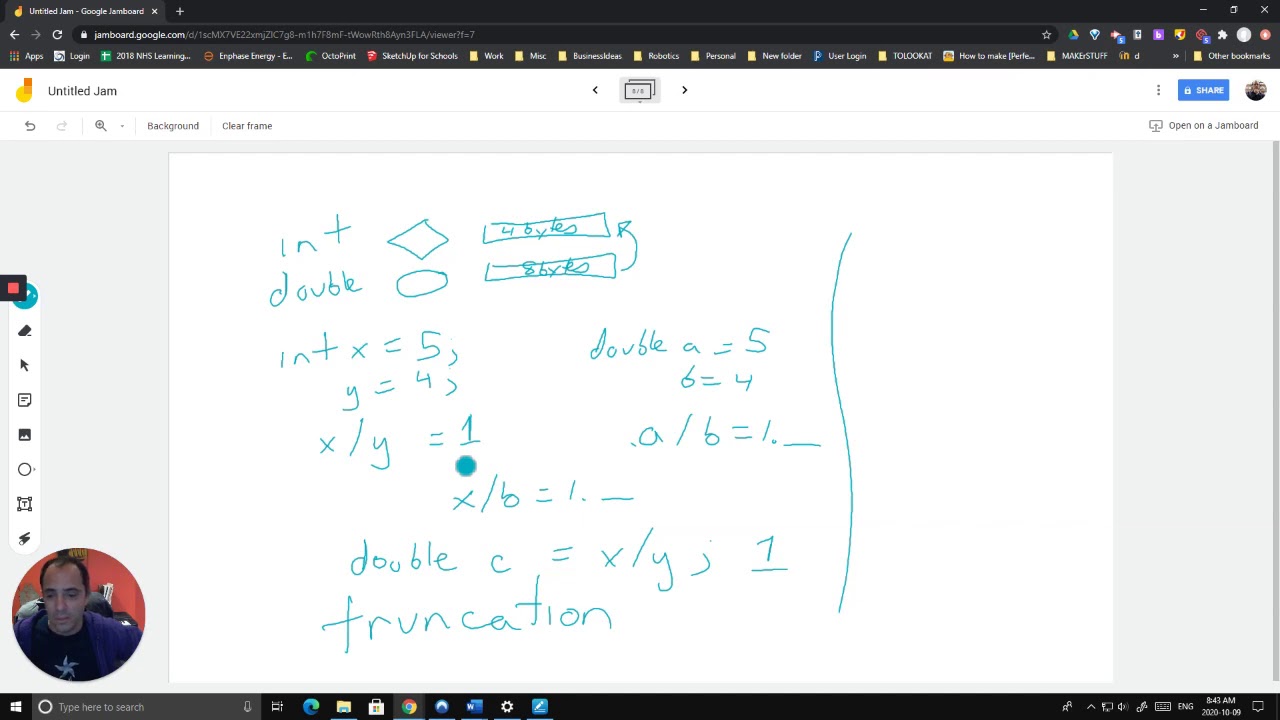 Untitled Jam - Google Jamboard
jamboard.google.com/d/1scMX7VE22xmjZlC7g8-m1h7F8mF-tWowRth8Ayn3FLA/viewer?f=7
Apps Login 2018 NHS Learning... Enphase Energy - E... OctoPrint SketchUp for Schools Work Misc BusinessIdeas Robotics Personal User Login TOLOOKAT How to make [Perfe... MAKErSTUFF d » Other bookmarks
Untitled Jam
8/8
SHARE
Background Clear frame
Open on a Jamboard
int 4 bytes
double 8bytes
int x = 5;
y = 4;
x/y = 1
double a = 5
b = 4
.a/b = 1. __
x/b = 1. __
double c = x/y; 1
truncation
Type here to search
ENG
8:43 AM
2020-10-09